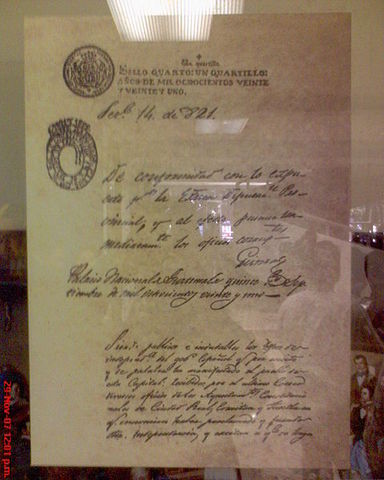 Un quartillo
SELLO QUARTO: UN QUARTILLO:
AÑOS DE MIL OCHOCIENTOS VEINTE
Y VEINTE Y UNO.
14. de 821.
De conformidad con lo expu-
esto pr. la Exma. Diputacn. Pro-
vincial, y al efecto
los oficios
Gainza
Palacio Nacional de Guatemala quince de Sep-
tiembre de mil ochocientos veinte y uno
Siendo publica e indudables los deseos de
independa. del gobo. Español, q. por escrito
y de palabra ha manifestado el pueblo de
esta Capital: recibidos por el ultimo Correo
diversos oficios de los Ayuntamtos. Constitucio-
nales de Ciudad Real, Comitan y Tuxtla en
q. comunican haber proclamado y jurado
dha. Independencia, y excitan a q. se haga
29-Nov-07 12:01 p.m.